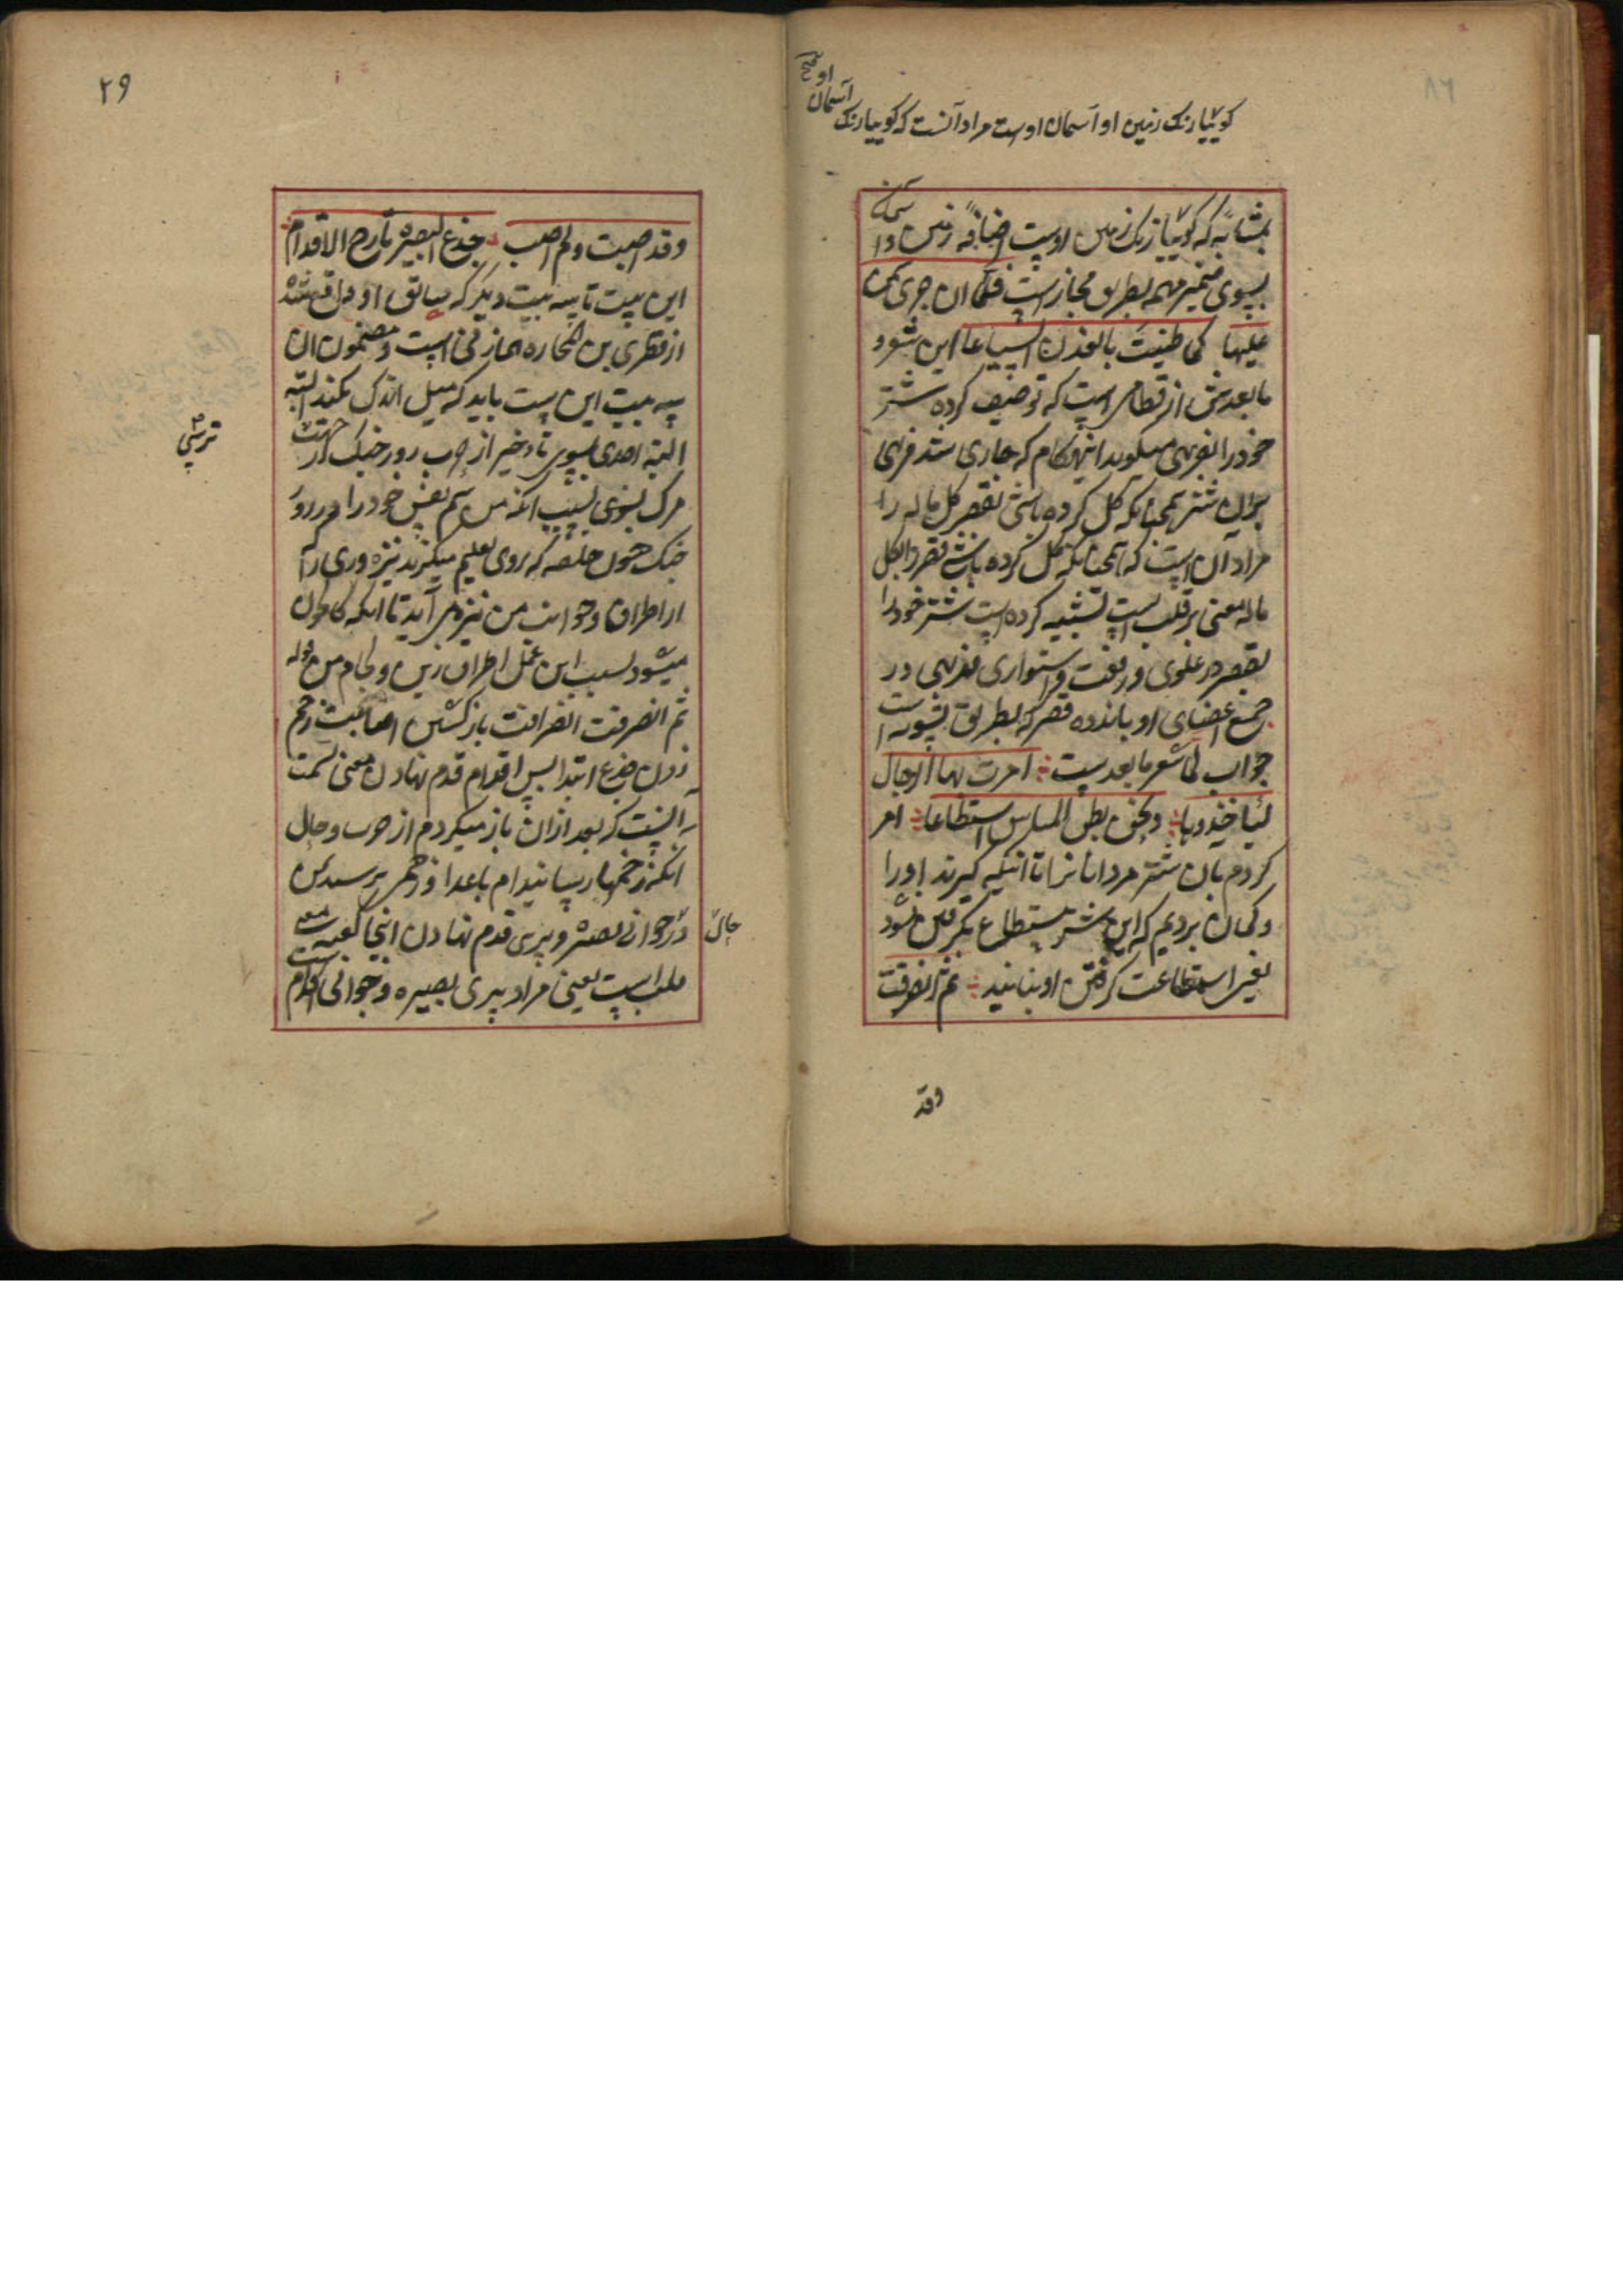 او صح
آسمان
کوییا رنک زمین او آسمان اوست مراد آنست که کوییا رنک
بمثابه که کوییا رنک زمین اوست اضافه زمین و آسمان
بسوی ضمیر مهمه بطریق مجاز است فلما ان جری سمن
علیها کما طینت بالفدن السیاعا این شعر و
مابعدش از قطامی است که توصیف کرده شتر
خود را بفربهی میکوید انهنکام که جاری شد فربهی
بران شتر همچنانکه کل کرده باشی بقصر کل ماله را
مراد آن است که همچنانکه کل کرده باشی قصر را بکل
ماله معنی بر قلب است تشبیه کرده است شتر خود را
بقصر در علوی و رفعت و استواری فربهی در
جمیع اعضای او باندوده قصر که بطریق تسویه است
جواب لما شعر مابعد است امرت بها الرجال
لیاخذوها و نحن نظن ان لن تستطاعا امر
کردم بان شتر مردانرا تا انکه کیرند اورا
و کمان بردیم که این شتر مستطاع نمیشود
یعنی استطاعت کرفتن او ندانید ثم انصرفت
وقد
۲۹
وقد اصبت ولم اصب جذع البصیره قارح الاقدام
این بیت تا سه بیت دیکر که سابق او واقع شده
از قطری بن الفجاءه المازنی است و مضمون ان
سه بیت این است باید که میل اندک نکند البته
البته احدی بسوی تاخیر از حرب روز جنک از جهت
ترسی
مرک بسوی بسبب انکه من بینم نفس خود را در روز
جنک چون حلقه که بروی تعلیم میکیرند نیزه وری را که
از اطراف و جوانب من نیزه می آید تا انکه کلکون
میشود بسبب این عمل اطراف زین و لجام من قوله
ثم انصرفت انصرافت باز کشتن اصابت زخم
زدن جذع ابتدا سن اقدام قدم نهادن معنی بیت
آنست که بعد ازان باز میکردم از حرب و حال
انکه زخمها رسانیدام باعدا و زخم نرسید بمن
در جوانی بصیره و پیری قدم نهادن اینجا
حال
قلب است یعنی مراد پیری بصیره و جوانی اقدام است